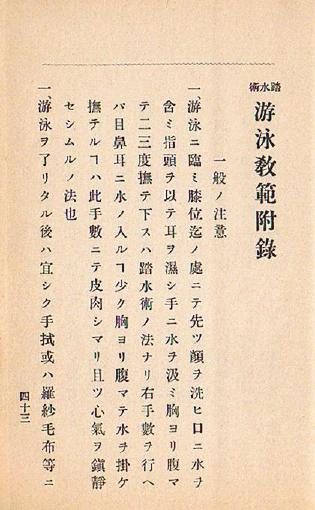 踏水術
游泳教範附錄
一般ノ注意
一、游泳ニ臨ミ膝位迄ノ處ニテ先ツ顔ヲ洗ヒ口ニ水ヲ
含ミ指頭ヲ以テ耳ヲ濕シ手ニ水ヲ汲ミ胸ヨリ腹マ
テ二三度撫テ下スハ踏水術ノ法ナリ右手數ヲ行ヘ
バ目鼻耳ニ水ノ入ルヿ少ク胸ヨリ腹マテ水ヲ掛ケ
撫テルヿハ此手數ニテ皮肉シマリ且ツ心氣ヲ鎭靜
セシムルノ法也
一、游泳ヲ了リタル後ハ宜シク手拭或ハ羅紗毛布等ニ
四十三